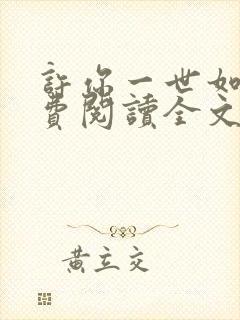 許你一世如
費閱讀全文
黃立文